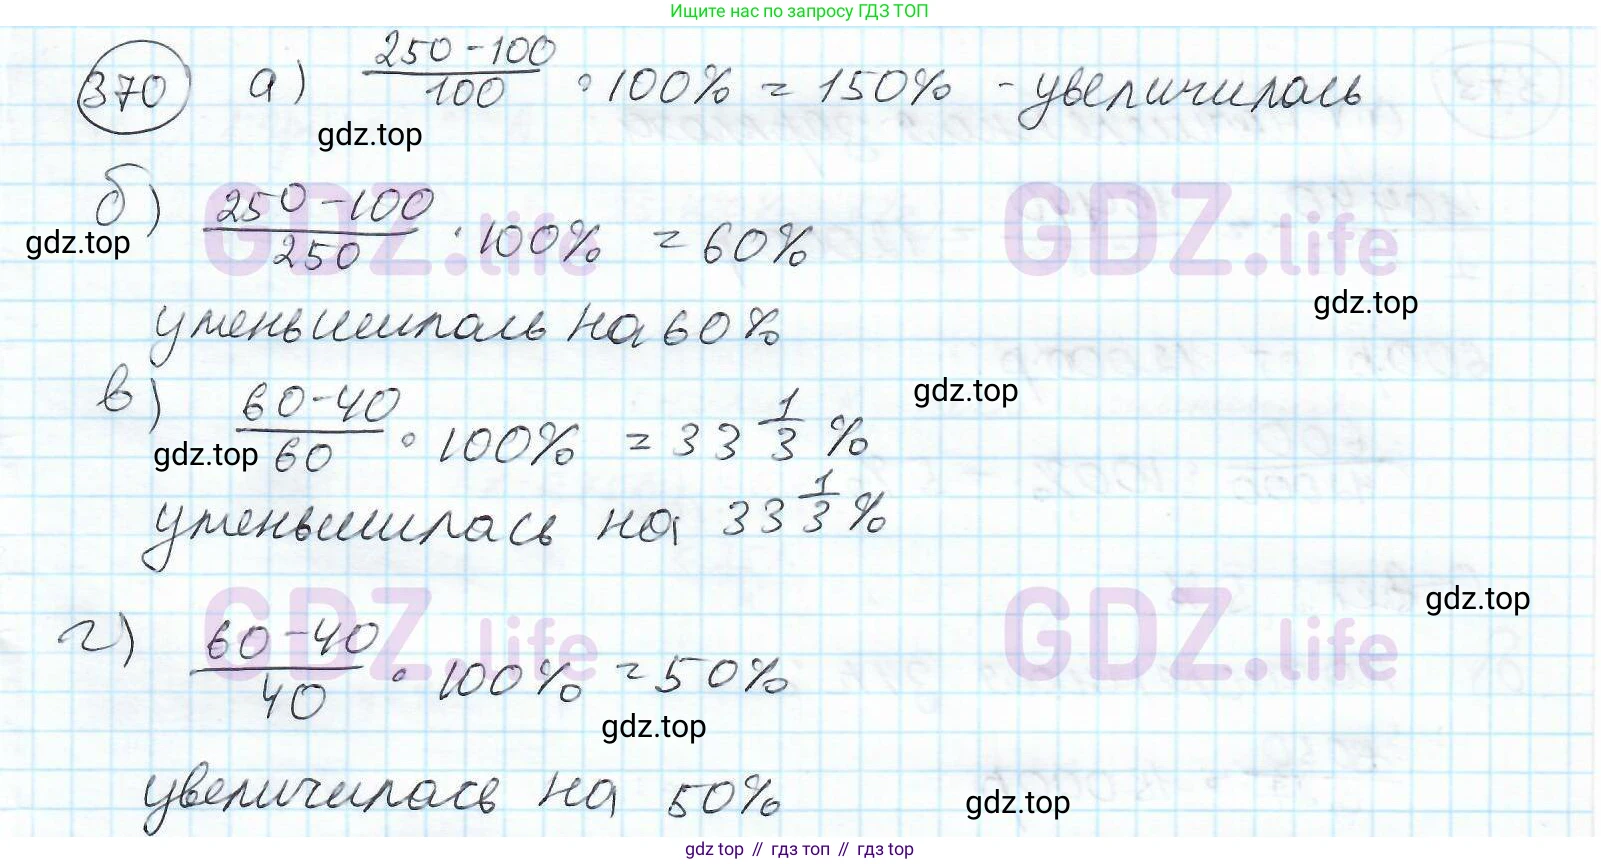 Ищите нас по запросу ГДЗ ТОП
370 а) (250 - 100)/100 · 100% = 150% - увеличилась
gdz.top
б) (250 - 100)/250 · 100% = 60%
gdz.top
GDZ.life GDZ.life
gdz.top
уменьшилась на 60%
gdz.top
в) (60 - 40)/60 · 100% = 33 1/3 %
gdz.top
уменьшилась на 33 1/3 %
GDZ.life GDZ.life
gdz.top
г) (60 - 40)/40 · 100% = 50%
gdz.top
увеличилась на 50%
gdz.top
gdz top // гдз топ // гдз top